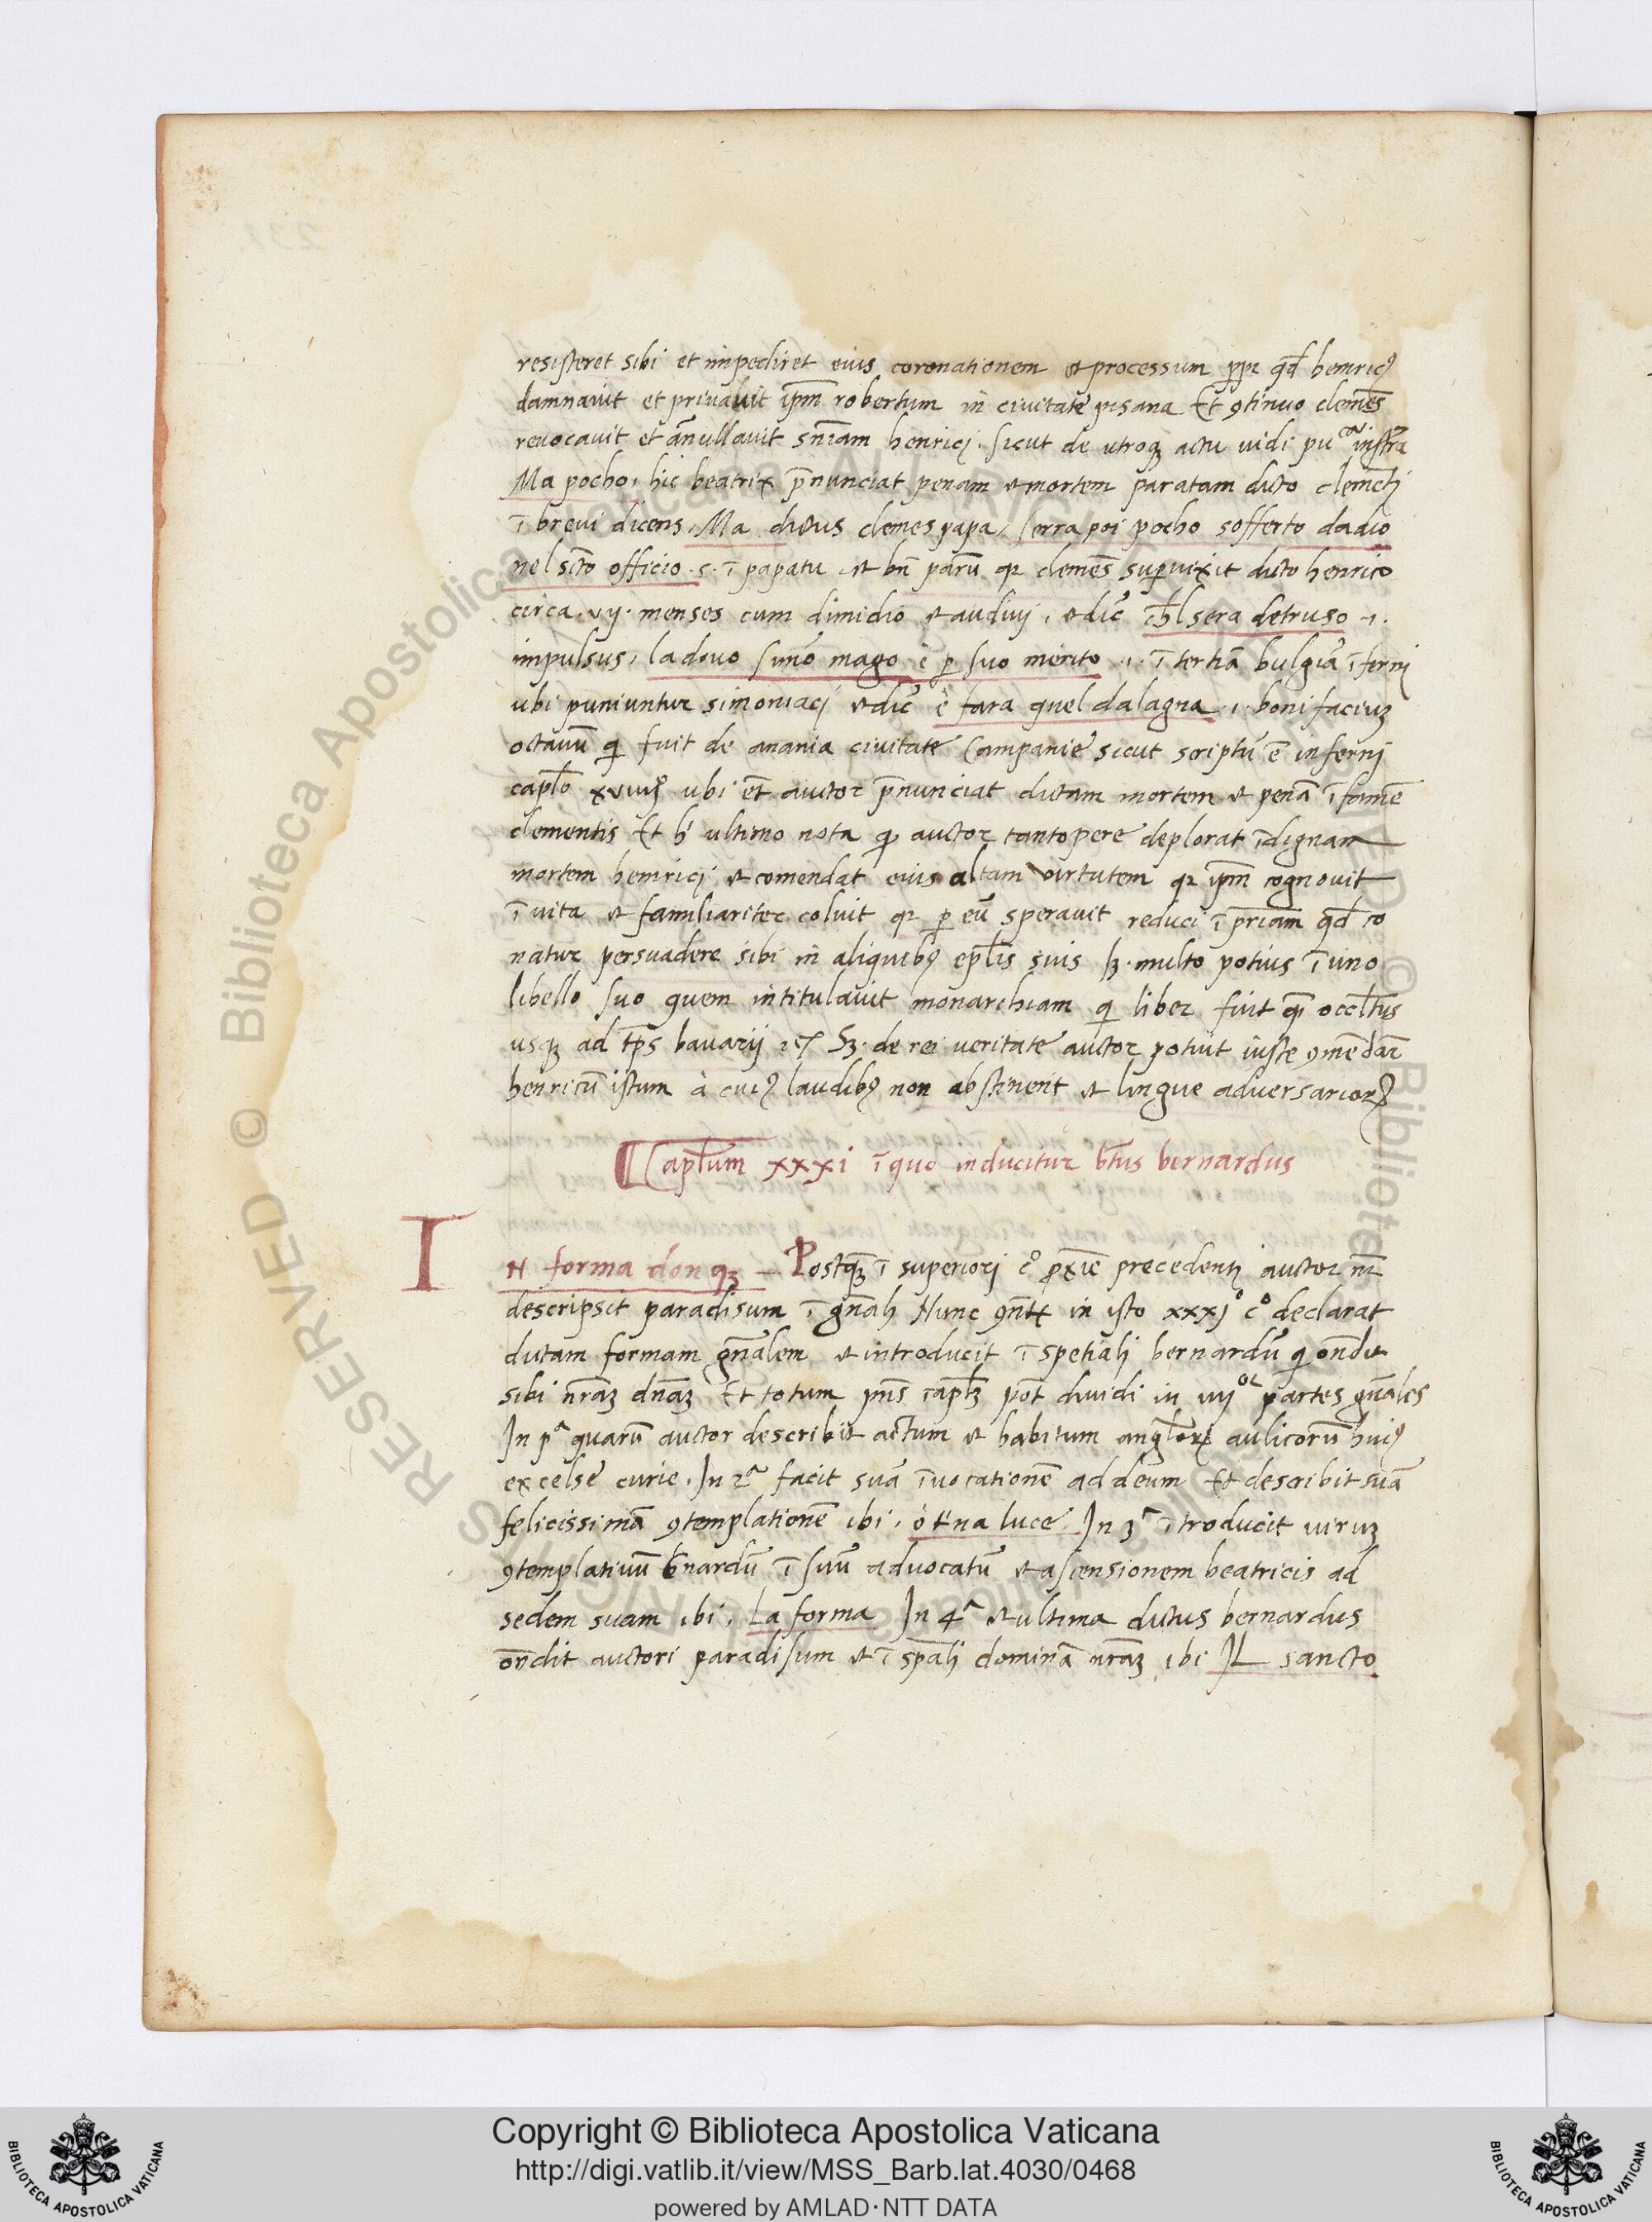 resisteret sibi et impediret eius coronationem et processum ꝓpꝛ qd̄ henricꝰ
damnavit et privavit ip̄m robertum in civitate pisana Et ꝯtinuo clemēs
revocavit et ānullavit sn̄iam henricj. sicut de utroqꝫ actu vidi puᶜᵃ instr̄a
Ma pocho, hic beatrix p̄nunciat penam et mortem paratam dicto clemētj
ī brevi dicens, Ma dictus clemes papa, serra poi pocho sofferto dadio
nel sc̄to officio .s. ī papatu et bn̄ parū qꝛ clemēs suꝑvixit dicto henrico
circa .vij. menses cum dimidio et audivj, et dic̄ ch̄l sera detruso .i.
impulsus, ladovo simō mago è ꝑ suo merito .i. ī tertiā bulgiā īfernj
ubi puniuntur simoniacj et dic̄ è fara quel dalagna .i. bonifaciuꝫ
octavū qi fuit de anania civitate Campanie sicut scriptū ē infernj
capl̄o xviiijº ubi et̄ auctor p̄nunciat dictam mortem et penā īfamē
clementis Et h' ultimo nota qi auctor tantopere deplorat īdignam
mortem henricj et comendat eius altam virtutem qꝛ ip̄m cognovit
ī vita et familiariter coluit qꝛ ꝑ eū speravit reduci ī pr̄iam qd̄ co
natur persuadere sibi in aliquibꝰ epl̄is suis sꝫ multo potius ī uno
libello suo quem intitulavit monarchiam qi liber fuit qi occl̄tus
usqꝫ ad tp̄s bavarij Sꝫ. de rei veritate auctor potuit iuste ꝯmēdar̄
henricū istum à cuiꝰ laudibꝰ non abstinent et lingue adversarioꝝ
Capl̄um xxxi ī quo inducitur bt̄us bernardus
IN forma donqꝫ – Postqꝫ̄ ī superiorj cº ꝓxīe precedentj auctor nr̄
descripsit paradisum ī gn̄alj Nunc ꝯn̄tr in isto xxxjº cº declarat
dictam formam gn̄alem et introducit ī spetialj bernardū qi on̄dit
sibi nr̄aꝫ dn̄aꝫ Et totum pn̄s capl̄ꝫ pōt dividi in iiijᵒʳ partes gn̄ales
In pᵃ quarū auctor describit actum et habitum angl̄oꝝ aulicorū huiꝰ
excelse curie. In 2ᵃ facit suā īvocationē ad deum Et describit suā
felicissimā ꝯtemplationē ibi, ò trīa luce. In 3ᵃ ītroducit viruꝫ
ꝯtemplativū b̄nardū ī suū advocatū et ascensionem beatricis ad
sedem suam ibi, La forma In 4ᵃ et ultima dictus bernardus
on̄dit auctori paradisum et ī sp̄alj dominā nr̄aꝫ ibi IL sancto
Copyright © Biblioteca Apostolica Vaticana
http://digi.vatlib.it/view/MSS_Barb.lat.4030/0468
powered by AMLAD·NTT DATA
BIBLIOTECA APOSTOLICA VATICANA
BIBLIOTECA APOSTOLICA VATICANA